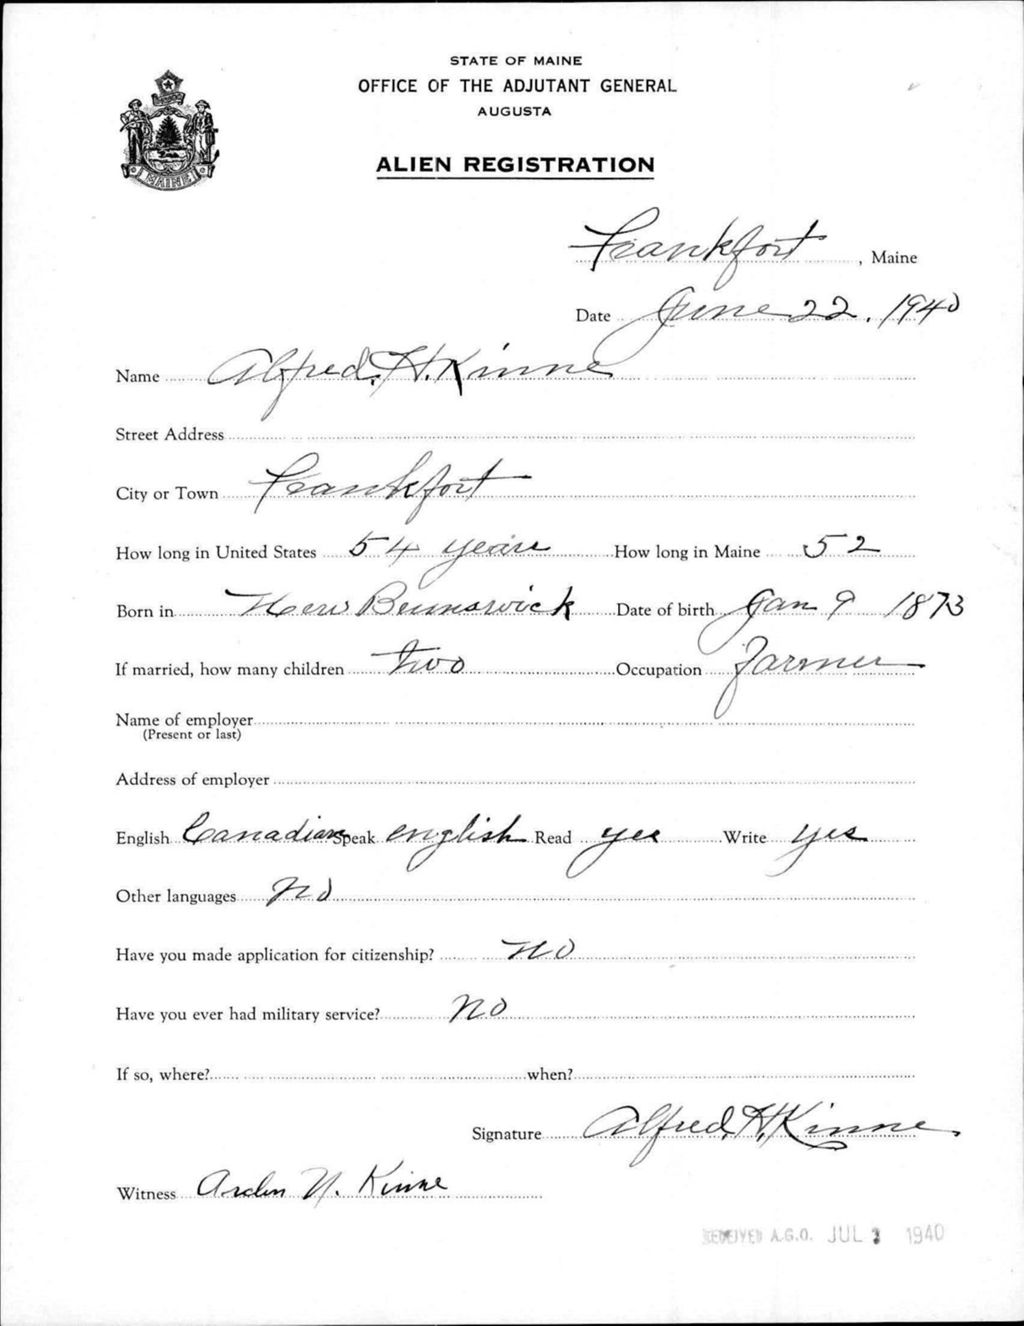 STATE OF MAINE
OFFICE OF THE ADJUTANT GENERAL
AUGUSTA
ALIEN REGISTRATION
MAINE
Frankfort, Maine
Date June 22, 1940
Name Alfred. H. Kinne
Street Address
City or Town Frankfort
How long in United States 54 years How long in Maine 52
Born in New Brunswick Date of birth Jan 9 1873
If married, how many children two Occupation Farmer
Name of employer
(Present or last)
Address of employer
English Canadian Speak english Read yes Write yes
Other languages no
Have you made application for citizenship? no
Have you ever had military service? no
If so, where? when?
Signature Alfred. H. Kinne
Witness Arden N. Kinne
RECEIVED A.G.O. JUL 1940